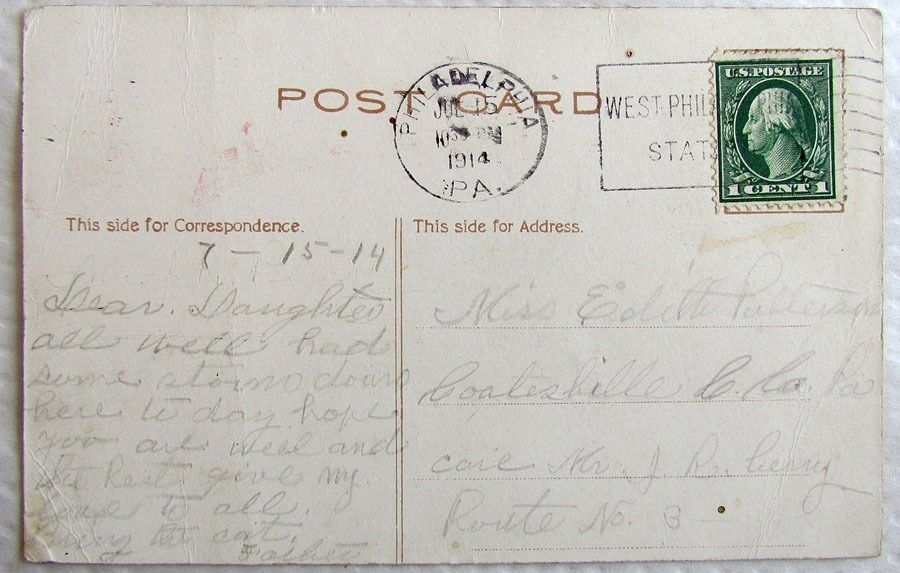 POST CARD
PHILADELPHIA
JUL 15
1914
PA.
WEST PHIL
STAT
U.S. POSTAGE
1 CENT 1
This side for Correspondence.
7-15-14
Dear Daughter
all well had
some storm down
here to day hope
you are well and
the rest give my
love to all.
Bring the cat.
Father
This side for Address.
Miss Edith Patterson
Coatesville C. Co. Pa
care Mr. J
Route No. 3